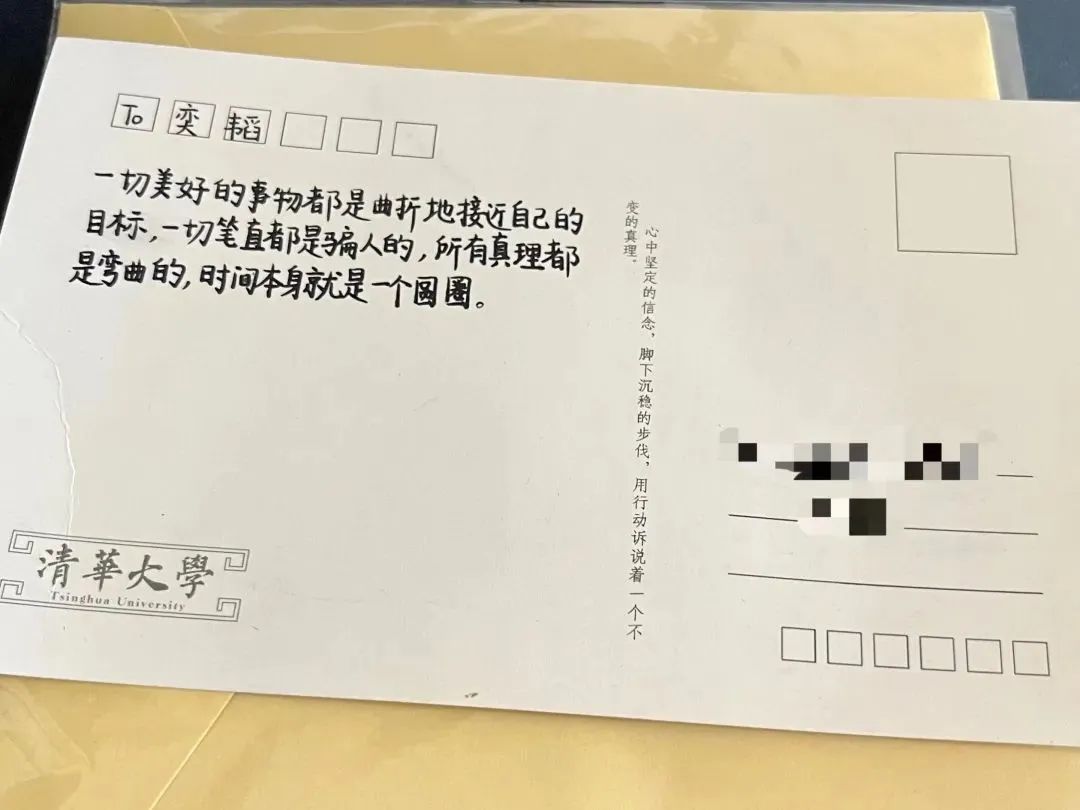 To 奕 韬
一切美好的事物都是曲折地接近自己的
目标,一切笔直都是骗人的,所有真理都
是弯曲的,时间本身就是一个圆圈。
心中坚定的信念，脚下沉稳的步伐，用行动诉说着一个不
变的真理。
清華大學
Tsinghua University